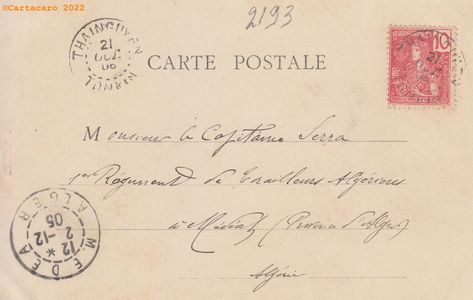 © Cartacaro 2022
2193
THAINGUYEN
21
OCT
05
TONKIN
CARTE POSTALE
10
Monsieur le Capitaine Serra
1er Régiment de Tirailleurs Algériens
à Médéa (Province d'Alger)
Algérie
MEDEA
12-12
2
05
ALGER